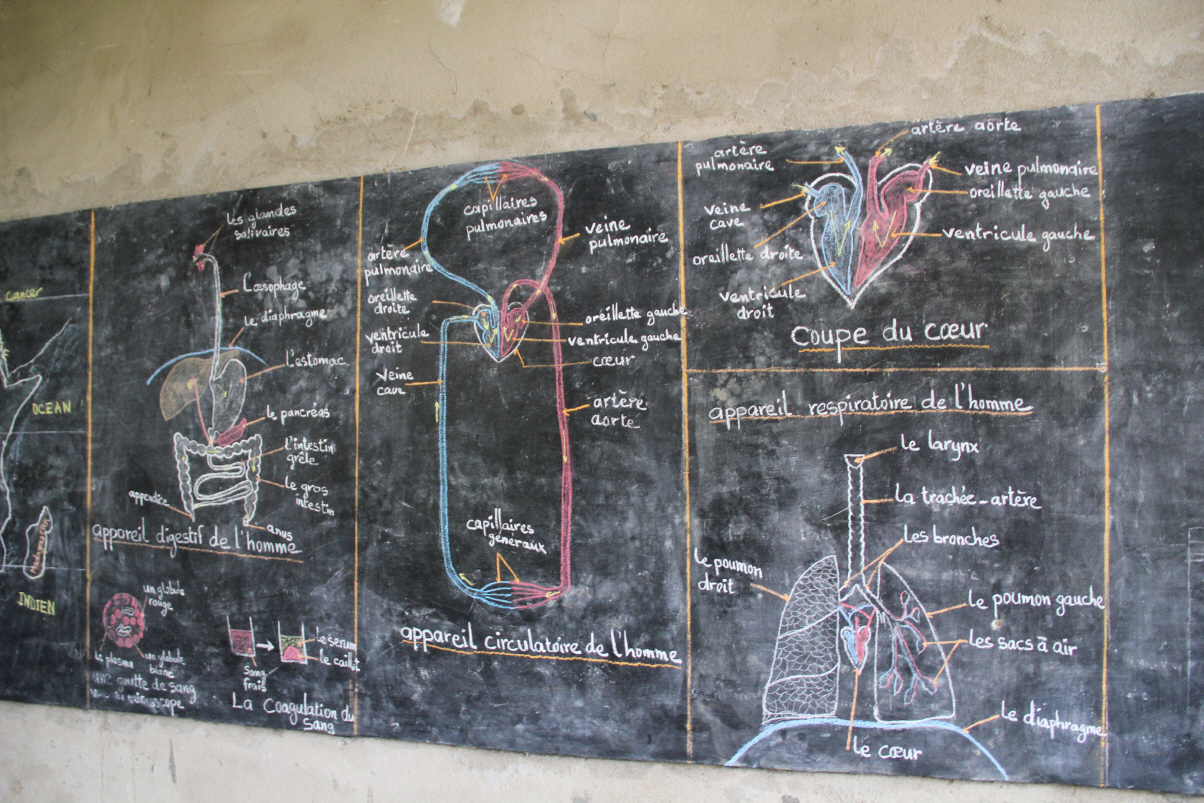 cancer
OCEAN
Madagascar
INDIEN
les glandes
salivaires
L'œsophage
le diaphragme
l'estomac
le pancréas
l'intestin
grêle
le gros
intestin
appendice
anus
appareil digestif de l'homme
un globule
rouge
un globule
blanc
le plasma
goutte de sang
au microscope
Sang
frais
le sérum
le caillot
La Coagulation du
Sang
capillaires
pulmonaires
artère
pulmonaire
veine
pulmonaire
oreillette
droite
oreillette gauche
ventricule
droit
ventricule gauche
cœur
veine
cave
artère
aorte
capillaires
géneraux
appareil circulatoire de l'homme
artère
pulmonaire
artère aorte
veine pulmonaire
oreillette gauche
veine
cave
ventricule gauche
oreillette droite
ventricule
droit
Coupe du cœur
appareil respiratoire de l'homme
le larynx
la trachée-artère
les bronches
le poumon
droit
le poumon gauche
les sacs à air
le diaphragme
le cœur